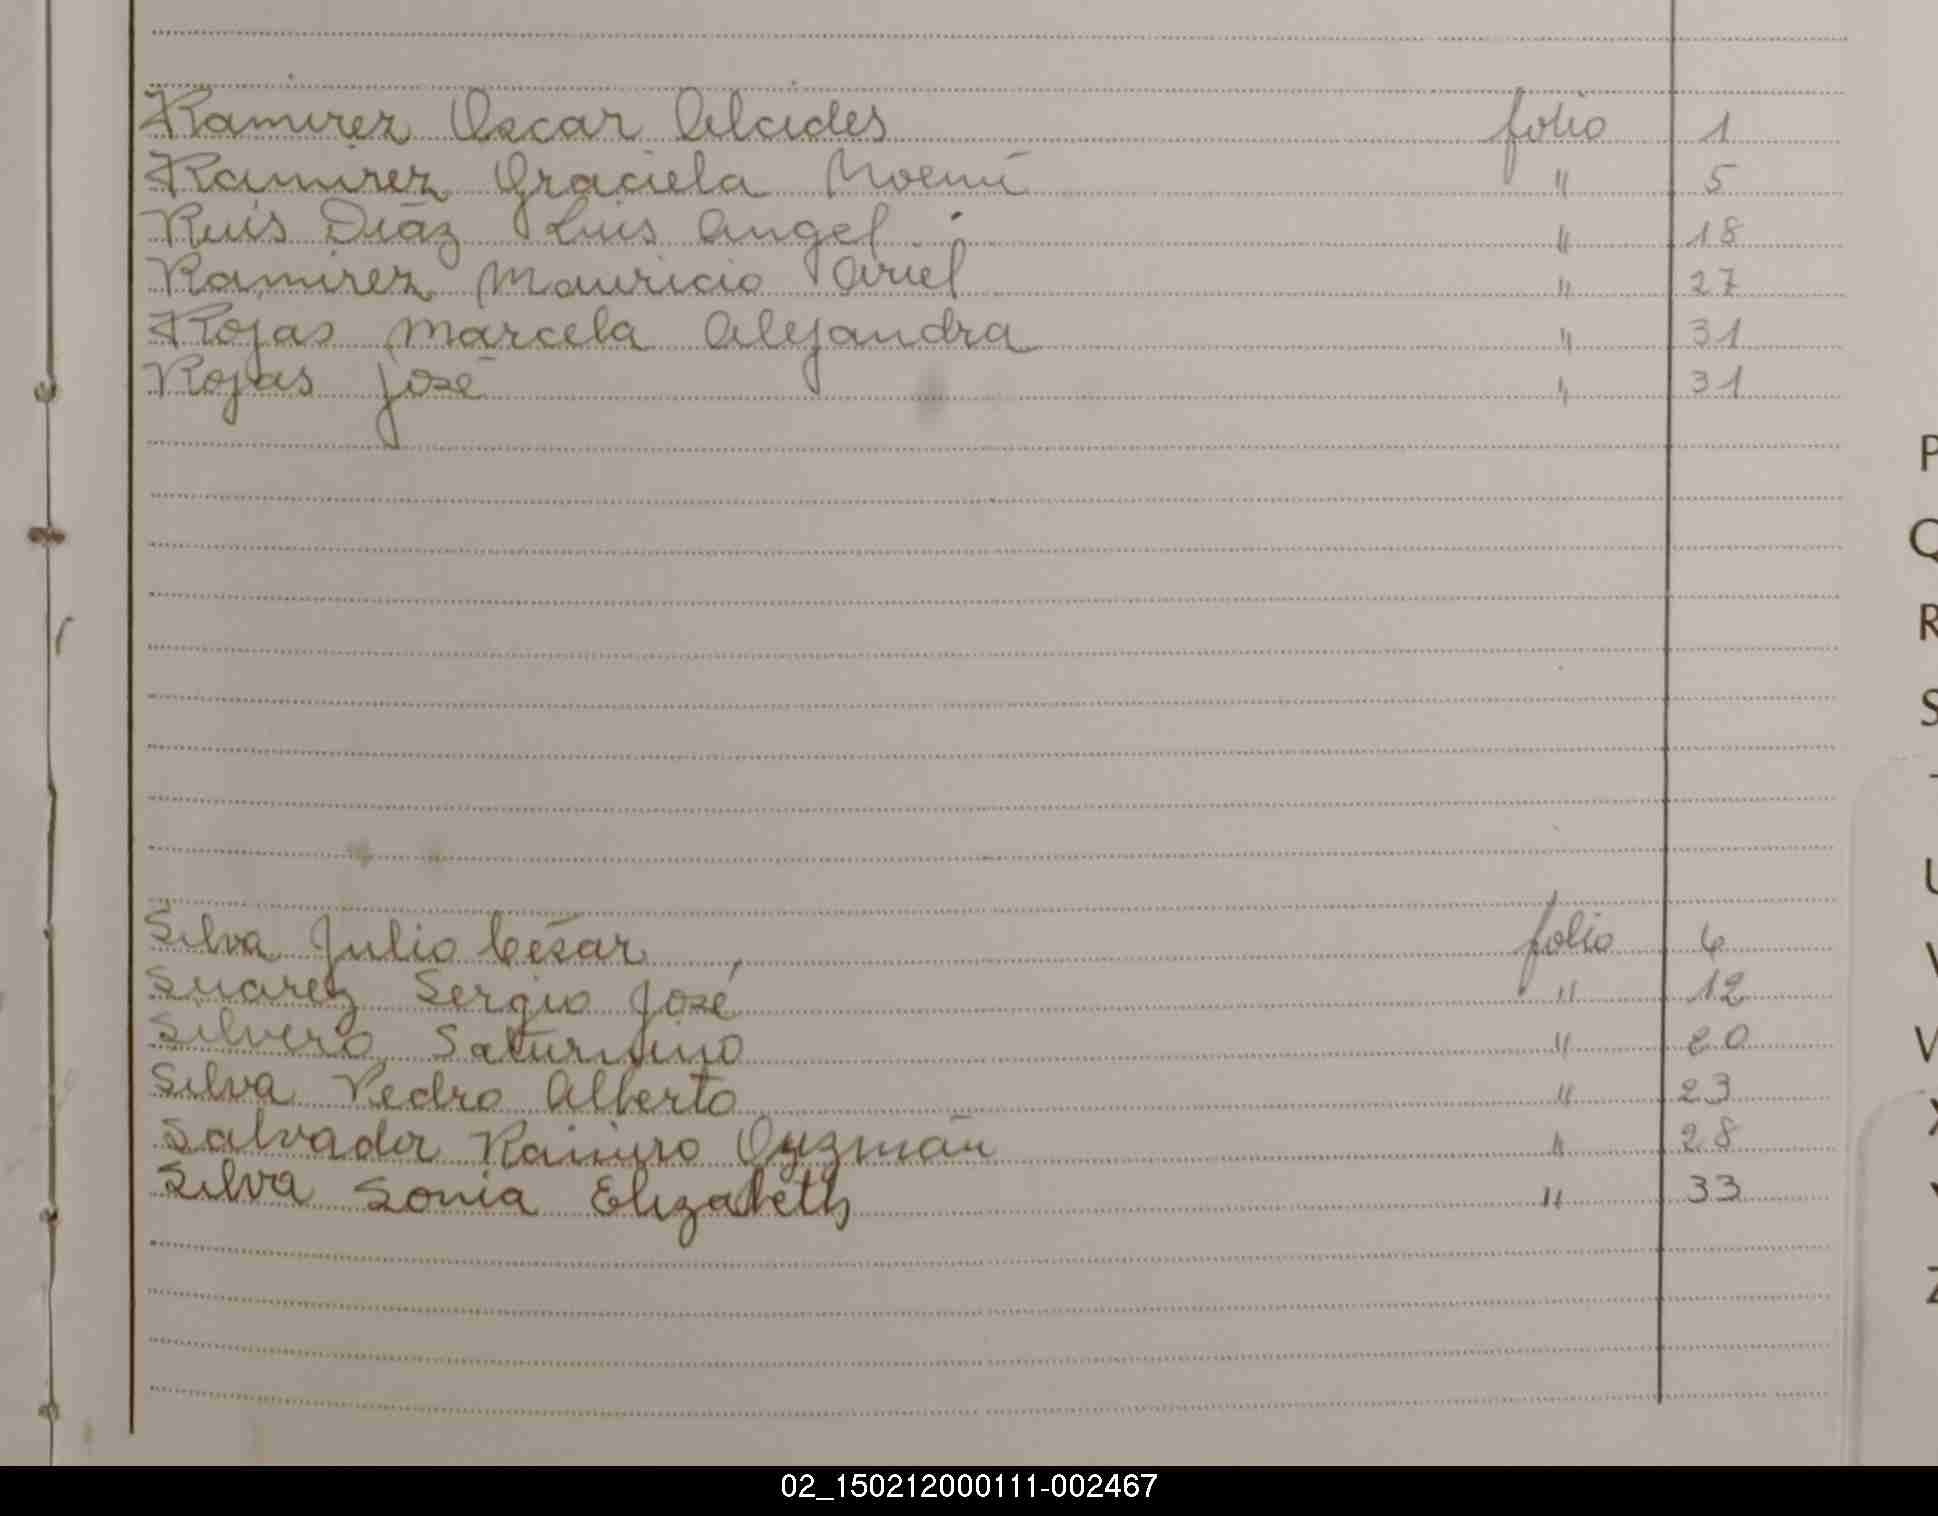 Ramirez Oscar Alcides folio 1
Ramirez Graciela Noemí " 5
Ruis Diáz Luis Angel " 18
Ramirez Mauricio Ariel " 27
Rojas Marcela Alejandra " 31
Rojas José " 31
P
Q
R
S
T
U
Silva Julio César folio 6
V
Suarez Sergio José " 12
Silvero Saturnino " 20
Silva Pedro Alberto " 23
X
Salvador Ramiro Guzmán " 28
Silva Sonia Elizabeth " 33
Y
Z
02_150212000111-002467